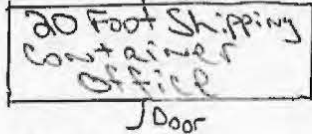 20 Foot Shipping
Container
Office
Door